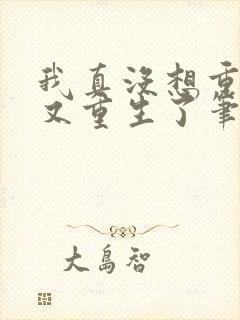 我真没想重
又重生了筆
大島智